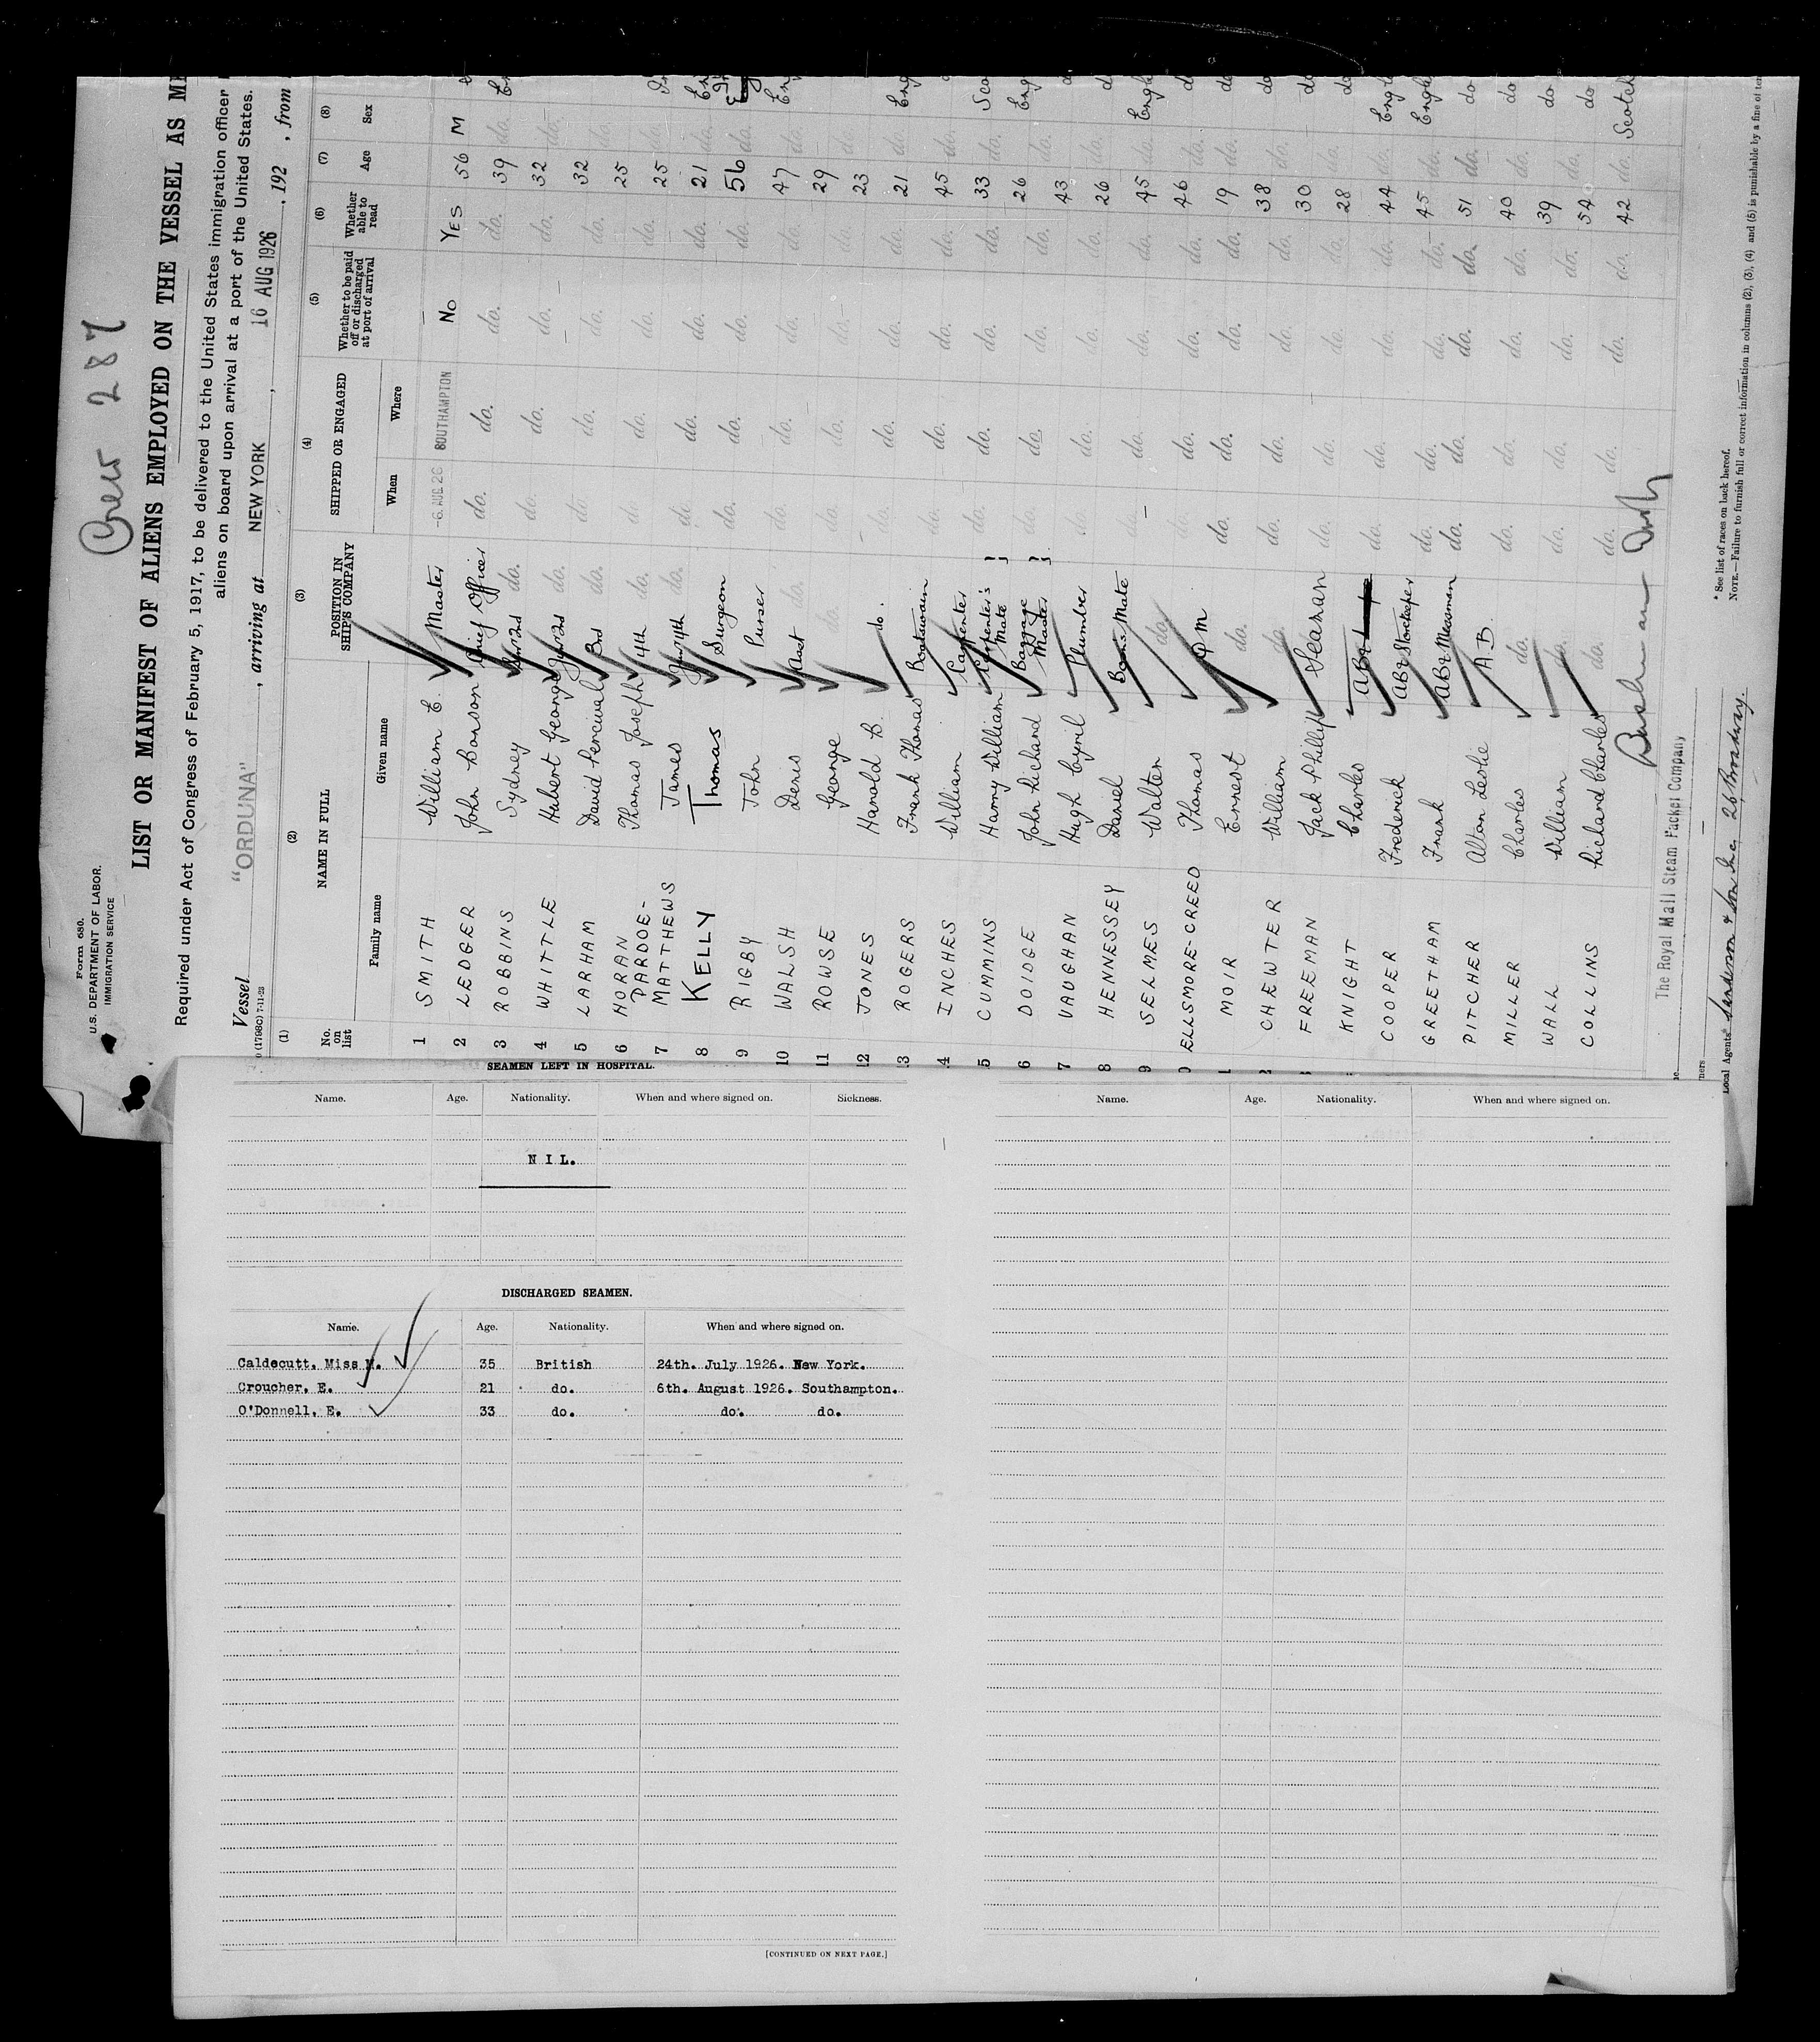 Crew 287
Form 680.
U.S. DEPARTMENT OF LABOR.
IMMIGRATION SERVICE
LIST OR MANIFEST OF ALIENS EMPLOYED ON THE VESSEL AS
Required under Act of Congress of February 5, 1917, to be delivered to the United States immigration officer
aliens on board upon arrival at a port of the United States.
Vessel "ORDUNA", arriving at NEW YORK, 16 AUG 1926, 192 , from
(1798C) 7-11-23
(1) (2) (3) (4) (5) (6) (7) (8)
No. on list NAME IN FULL POSITION IN SHIP'S COMPANY SHIPPED OR ENGAGED Whether to be paid off or discharged at port of arrival Whether able to read Age Sex
Family name Given name When Where
1 SMITH William E. Master -6 AUG 26 SOUTHAMPTON No YES 56 M
2 LEDGER John Barson Chief Officer do. do. do. do. 39 do.
3 ROBBINS Sydney Snr 2nd do. do. do. do. do. 32 do.
4 WHITTLE Hubert George Jnr 2nd do. do. do. do. do. 32 do.
5 LARHAM David Percival 3rd do. do. do. do. do. 25 do.
6 HORAN Thomas Joseph 4th do. do. do. do. do. 25 do.
7 PARDOE-MATTHEWS James Jnr 4th do. do. do. do. do. 21 do.
8 KELLY Thomas Surgeon do. do. do. do. 56 do.
9 RIGBY John Purser do. do. do. do. 47 do.
10 WALSH Denis Asst do. do. do. do. do. 29 do.
11 ROWSE George do. do. do. do. do. 23 do.
12 JONES Harold B. do. do. do. do. do. 21 do.
13 ROGERS Frank Thomas Boatswain do. do. do. do. 45 do.
14 INCHES William Carpenter do. do. do. do. 33 do.
5 CUMMINS Harry William Carpenter's Mate do. do. do. do. 26 do.
6 DOIDGE John Richard Baggage Master do. do. do. do. 43 do.
7 VAUGHAN Hugh Cyril Plumber do. do. do. do. 26 do.
8 HENNESSEY Daniel Bosns Mate do. do. do. 45 do.
9 SELMES Walter do. do. do. do. do. 46 do.
0 ELLSMORE-CREED Thomas Q M do. do. do. do. 19 do.
MOIR Ernest do. do. do. do. do. 38 do.
CHEWTER William do. do. do. do. do. 30 do.
FREEMAN Jack Phillip Seaman do. do. do. do. 28 do.
KNIGHT Charles AB do. do. do. do. 44 do.
COOPER Frederick AB & Storekeeper do. do. do. do. 45 do.
GREETHAM Frank AB & Messman do. do. do. do. 51 do.
PITCHER Alton Leslie A B. do. do. do. do. 40 do.
MILLER Charles do. do. do. do. do. 39 do.
WALL William do. do. do. do. do. 54 do.
COLLINS Richard Charles do. do. do. do. do. 42 do. Scotch
The Royal Mail Steam Packet Company
Local Agents Sanderson & Son Inc. 26 Broadway.
* See list of races on back hereof.
NOTE.—Failure to furnish full or correct information in columns (2), (3), (4) and (5) is punishable by a fine of ten
SEAMEN LEFT IN HOSPITAL.
Name. Age. Nationality. When and where signed on. Sickness.
NIL.
DISCHARGED SEAMEN.
Name. Age. Nationality. When and where signed on.
Caldecutt, Miss M. 35 British 24th. July 1926. New York.
Croucher, E. 21 do. 6th. August 1926. Southampton.
O'Donnell, E. 33 do. do. do.
[CONTINUED ON NEXT PAGE.]
Name. Age. Nationality. When and where signed on.